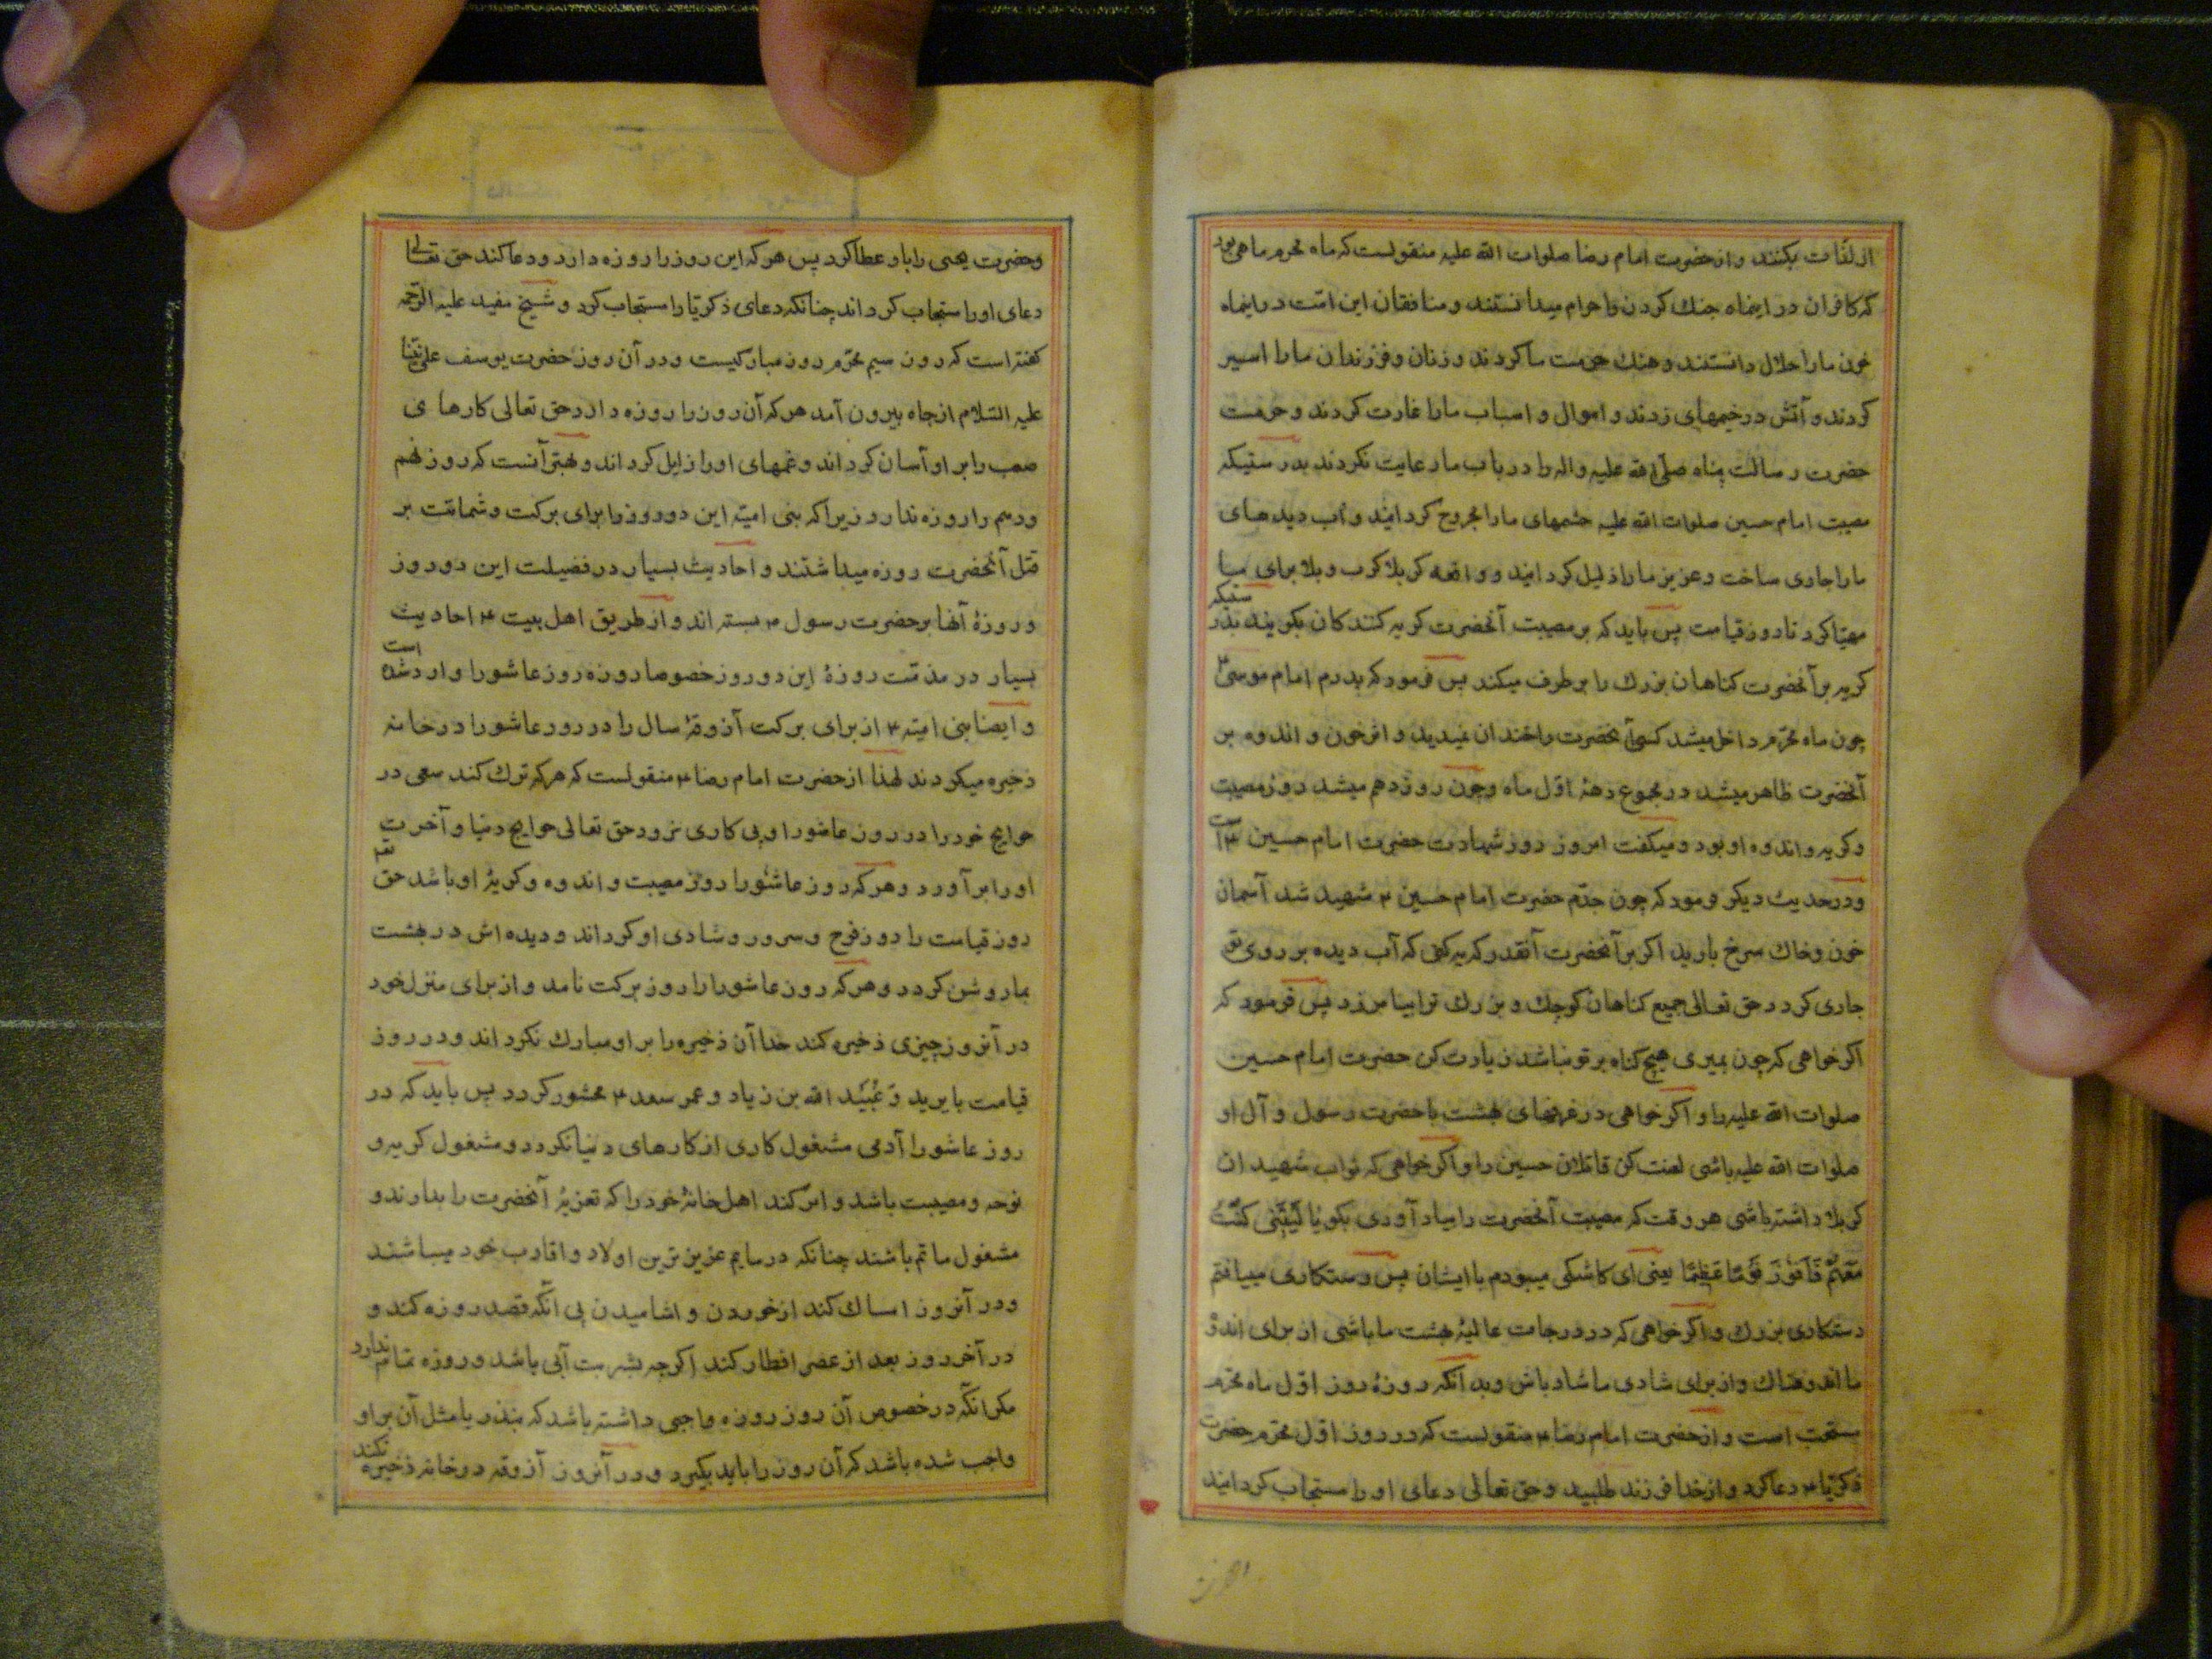 از لذّات بکنند و از حضرت امام رضا صلوات الله علیه منقولست که ماه محرم ماهی بود
که کافران در اینماه جنك کردن را حرام میدانستند و منافقان این امّت در اینماه
خون مارا حلال دانستند و هتك حرمت ما کردند و زنان و فرزندان مارا اسیر
کردند و آتش در خیمهای زدند و اموال و اسباب مارا غارت کردند و حرمت
حضرت رسالت پناه صلّی الله علیه واله را در باب ما رعایت نکردند بدرستیکه
مصیبت امام حسین صلوات الله علیه چشمهای مارا مجروح کردانید و آب دیدهای
مارا جاری ساخت و عزیز مارا ذلیل کردانید و واقعه کربلا کرب و بلا برای ما
مهیّا کرد تا روز قیامت پس باید که بر مصیبت آنحضرت کریه کنند کان بکریند بدرستیکه
کریه بر آنحضرت کناهان بزرك را بر طرف میکند پس فرمود که پدرم امام موسی ۴
چون ماه محرّم داخل میشد کسی آنحضرت را خندان نمیدید و اثر حزن و اندوه بر
آنحضرت ظاهر میشد در مجموع دههٔ اوّل ماه و چون روز دهم میشد روز مصیبت
و کریه و اندوه او بود و میکفت امروز روز شهادت حضرت امام حسین ۴ است
و در حدیث دیکر فرمود که چون جدّم حضرت امام حسین ۴ شهید شد آسمان
خون و خاك سرخ بارید اکر بر آنحضرت آنقدر کریه کنی که آب دیده بر روی تو
جاری کردد حق تعالی جمیع کناهان کوچك و بزرك ترا بیامرزد پس فرمود که
اکر خواهی که چون بمیری هیچ کناه بر تو نباشد زیارت کن حضرت امام حسین
صلوات الله علیه را و اکر خواهی در غرفهای بهشت با حضرت رسول و آل او
صلوات الله علیه باشی لعنت کن قاتلان حسین را و اکر خواهی که ثواب شهیدان
کربلا داشته باشی هر وقت که مصیبت آنحضرت را بیاد آوری بکو یا لَیْتَنی کُنْتُ
مَعَهُمْ فَاَفُوزَ فَوْزًا عَظیمًا یعنی ای کاشکی میبودم با ایشان پس رستکاری مییافتم
رستکاری بزرك و اکر خواهی که در درجات عالیهٔ بهشت ما باشی از برای اندوه
ما اندوهناك و از برای شادی ما شاد باش و بدانکه روزهٔ روز اوّل ماه محرّم
مستحبّ است و از حضرت امام رضا ۴ منقولست که در روز اوّل محرّم حضرت
ذکریّا ۴ دعا کرد و از خدا فرزند طلبید و حق تعالی دعای او را مستجاب کردانید
و حضرت یحیی را باو عطا کرد پس هر که این روز را روزه دارد و دعا کند حق تعالی
دعای او را مستجاب کرداند چنانکه دعای ذکریّا را مستجاب کرد و شیخ مفید علیه الرّحمه
کفته است که روز سیم محرّم روز مبارکیست و در آن روز حضرت یوسف علی نبیّنا
علیه السّلام از چاه بیرون آمد هر که آن روز را روزه دارد حق تعالی کارهای
صعب را بر او آسان کرداند و غمهای او را زایل کرداند و بهتر آنست که روز نهم
و دهم را روزه ندارد زیرا که بنی امیّه این دو روز را برای برکت و شماتت بر
قتل آنحضرت روزه میداشتند و احادیث بسیار در فضیلت این دو روز
و روزهٔ آنها بر حضرت رسول ۴ بسته اند و از طریق اهل بیت ۴ احادیث
بسیار در مذمّت روزهٔ این دو روز خصوصا روزه روز عاشورا وارد شده است
و ایضا بنی امیّه ۴ از برای برکت آذوقهٔ سال را در روز عاشورا در خانه
ذخیره میکردند لهذا از حضرت امام رضا ۴ منقولست که هر که ترك کند سعی در
حوایج خود را در روز عاشورا و پی کاری نرود حق تعالی حوایج دنیا و آخرت
او را بر آورد و هر که روز عاشورا روز مصیبت و اندوه و کریهٔ او باشد حق تعه
روز قیامت را روز فرح و سرور و شادی او کرداند و دیده اش در بهشت
بما روشن کردد و هر که روز عاشورا را روز برکت نامد و از برای منزل خود
در آنروز چیزی ذخیره کند خدا آن ذخیره را بر او مبارك نکرداند و در روز
قیامت با یزید وَ عُبَیْد الله بن زیاد و عمر سعد ۴ محشور کردد پس باید که در
روز عاشورا آدمی مشغول کاری از کارهای دنیا نکردد و مشغول کریه و
نوحه و مصیبت باشد و امر کند اهل خانهٔ خود را که تعزیهٔ آنحضرت را بدارند و
مشغول ماتم باشند چنانکه در ماتم عزیزترین اولاد و اقارب خود میباشند
و در آنروز امساك کند از خوردن و اشامیدن بی انکه قصد روزه کند و
در آخر روز بعد از عصر افطار کند اکرچه بشربت آبی باشد و روزه تمام ندارد
مکر انکه در خصوص آن روز روزه واجبی داشته باشد که بنذر یا مثل آن بر او
واجب شده باشد که آن روز را باید بکیرد و در آنروز آذوقه در خانه ذخیره نکند